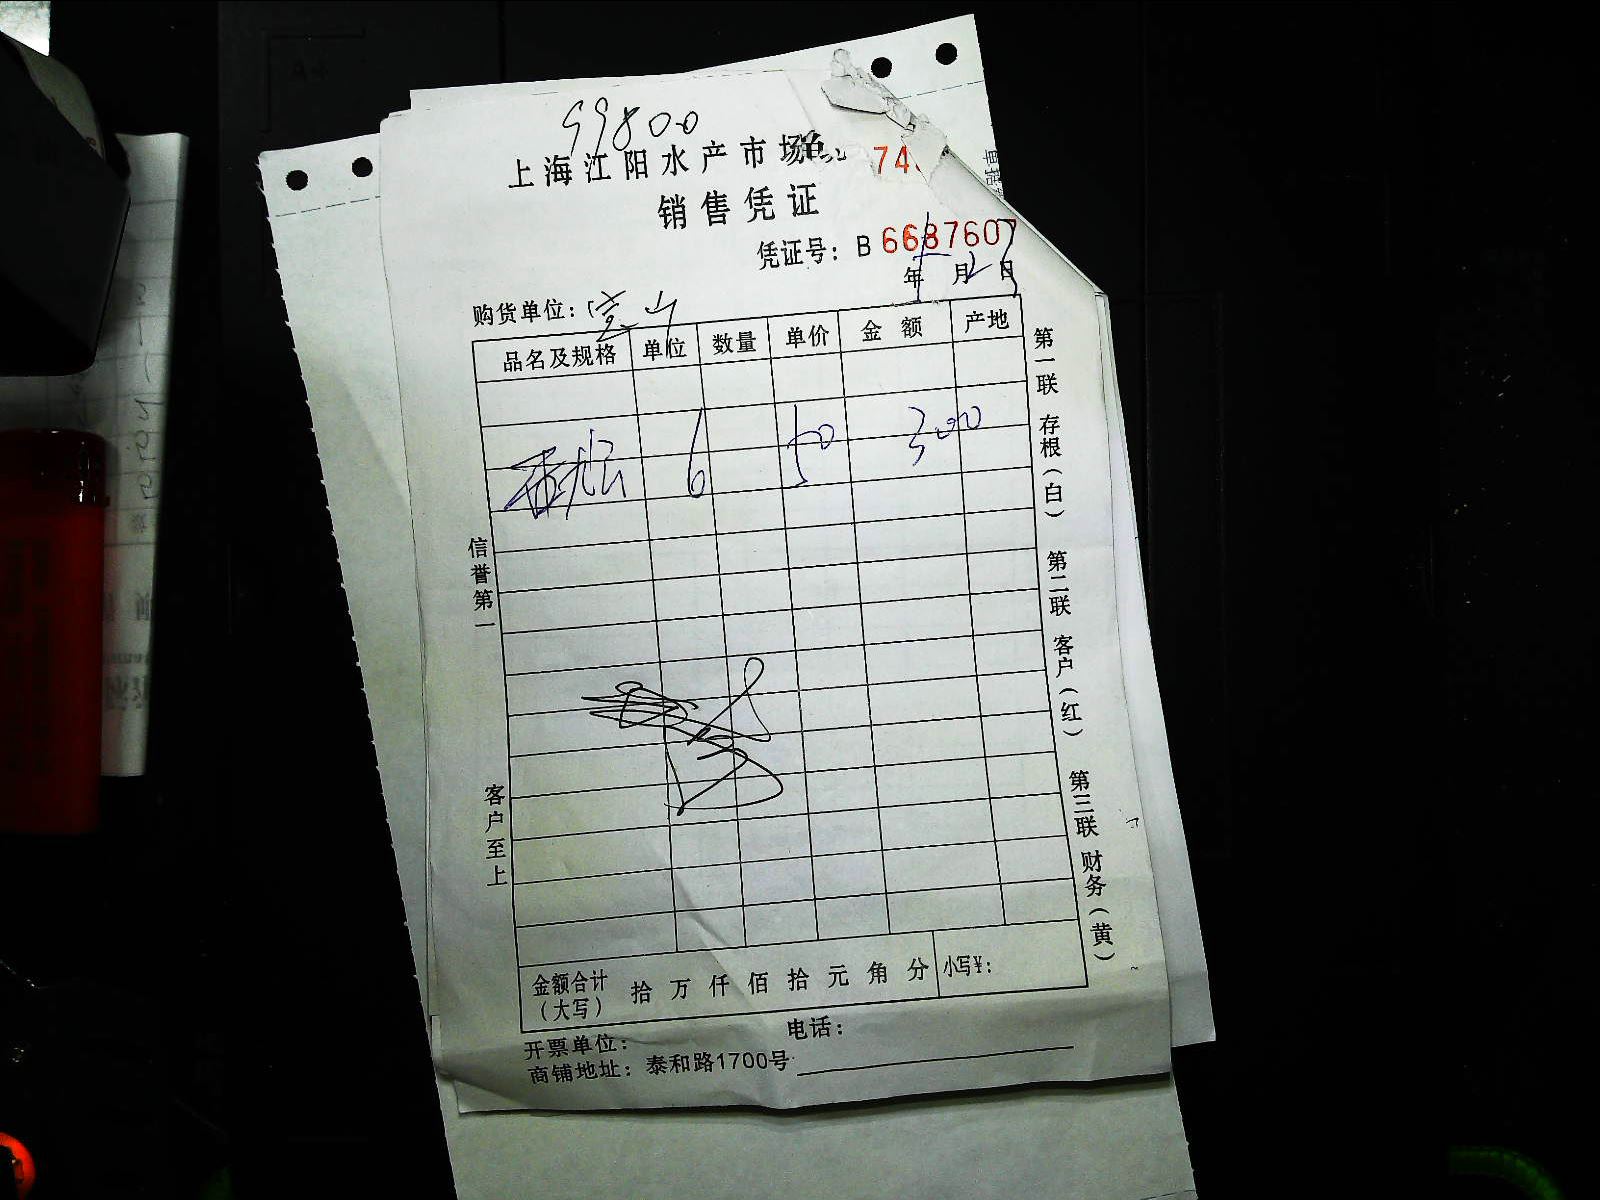 99800
上海江阳水产市场
74
销售凭证
凭证号：B 6687607
年 月 日
购货单位：
品名及规格 单位 数量 单价 金额 产地
6 50 300
金额合计（大写） 拾 万 仟 佰 拾 元 角 分 小写¥：
开票单位： 电话：
商铺地址：泰和路1700号
信誉第一
客户至上
第一联 存根（白） 第二联 客户（红） 第三联 财务（黄）